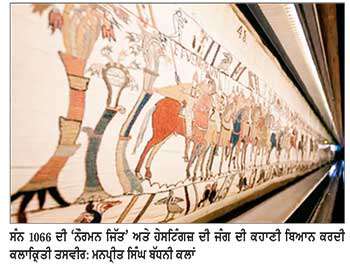 ਸੰਨ 1066 ਦੀ ‘ਨੌਰਮਨ ਜਿੱਤ’ ਅਤੇ ਹੇਸਟਿੰਗਜ਼ ਦੀ ਜੰਗ ਦੀ ਕਹਾਣੀ ਬਿਆਨ ਕਰਦੀ
ਕਲਾਕ੍ਰਿਤੀ ਤਸਵੀਰ: ਮਨਪ੍ਰੀਤ ਸਿੰਘ ਬੱਧਨੀ ਕਲਾਂ